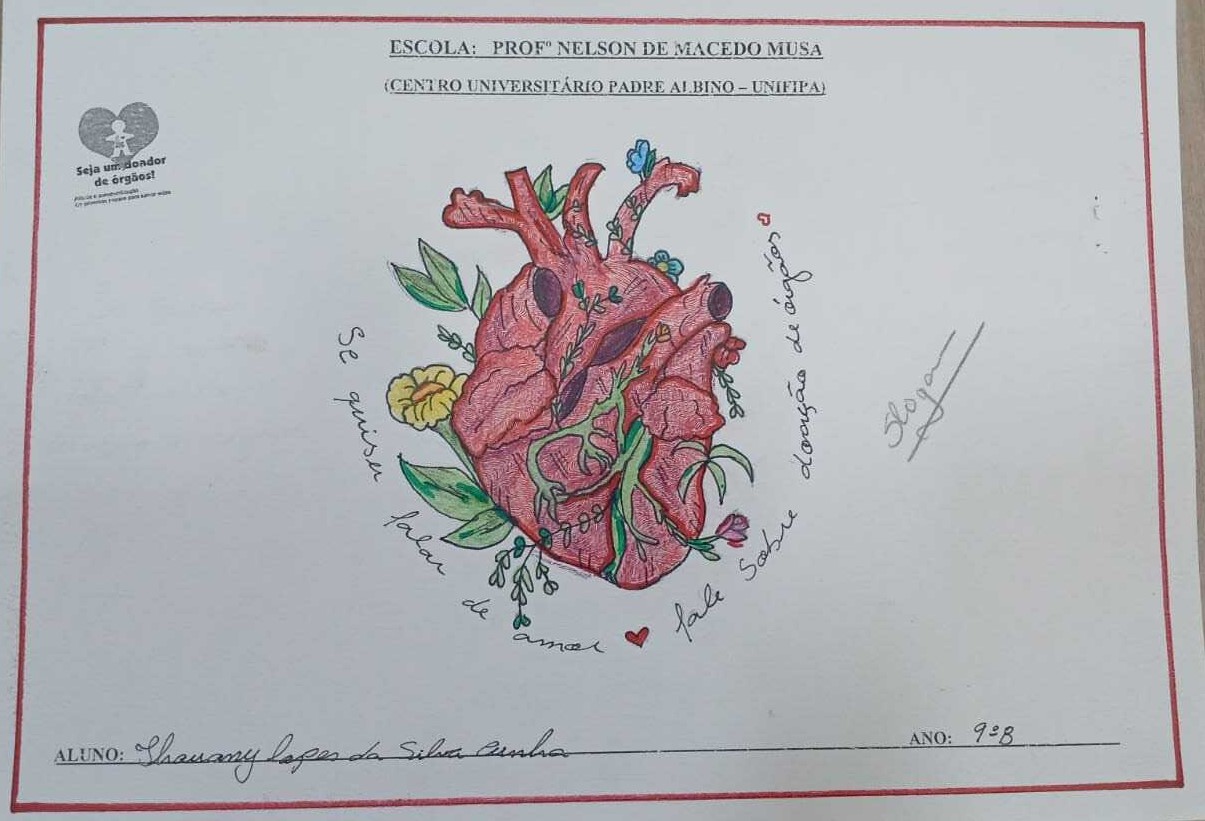 ESCOLA: PROFº NELSON DE MACEDO MUSA
(CENTRO UNIVERSITÁRIO PADRE ALBINO – UNIFIPA)
Seja um doador
de órgãos!
Se quiser falar de amor fale sobre doação de órgãos
Slogan
ALUNO: Thauany Lopes da Silva Cunha
ANO: 9ºB